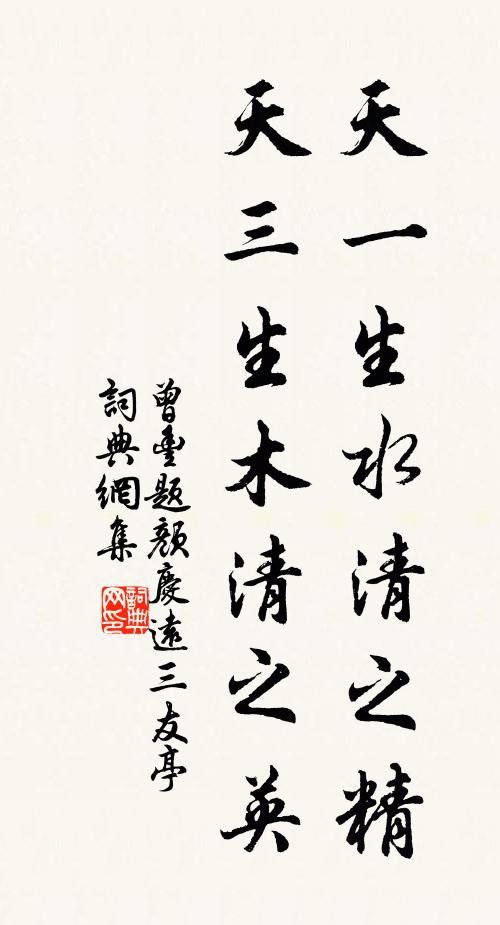 天一生水清之精
天三生木清之英
曾豐題顏慶遠三友亭
詞典網集
詞典网印